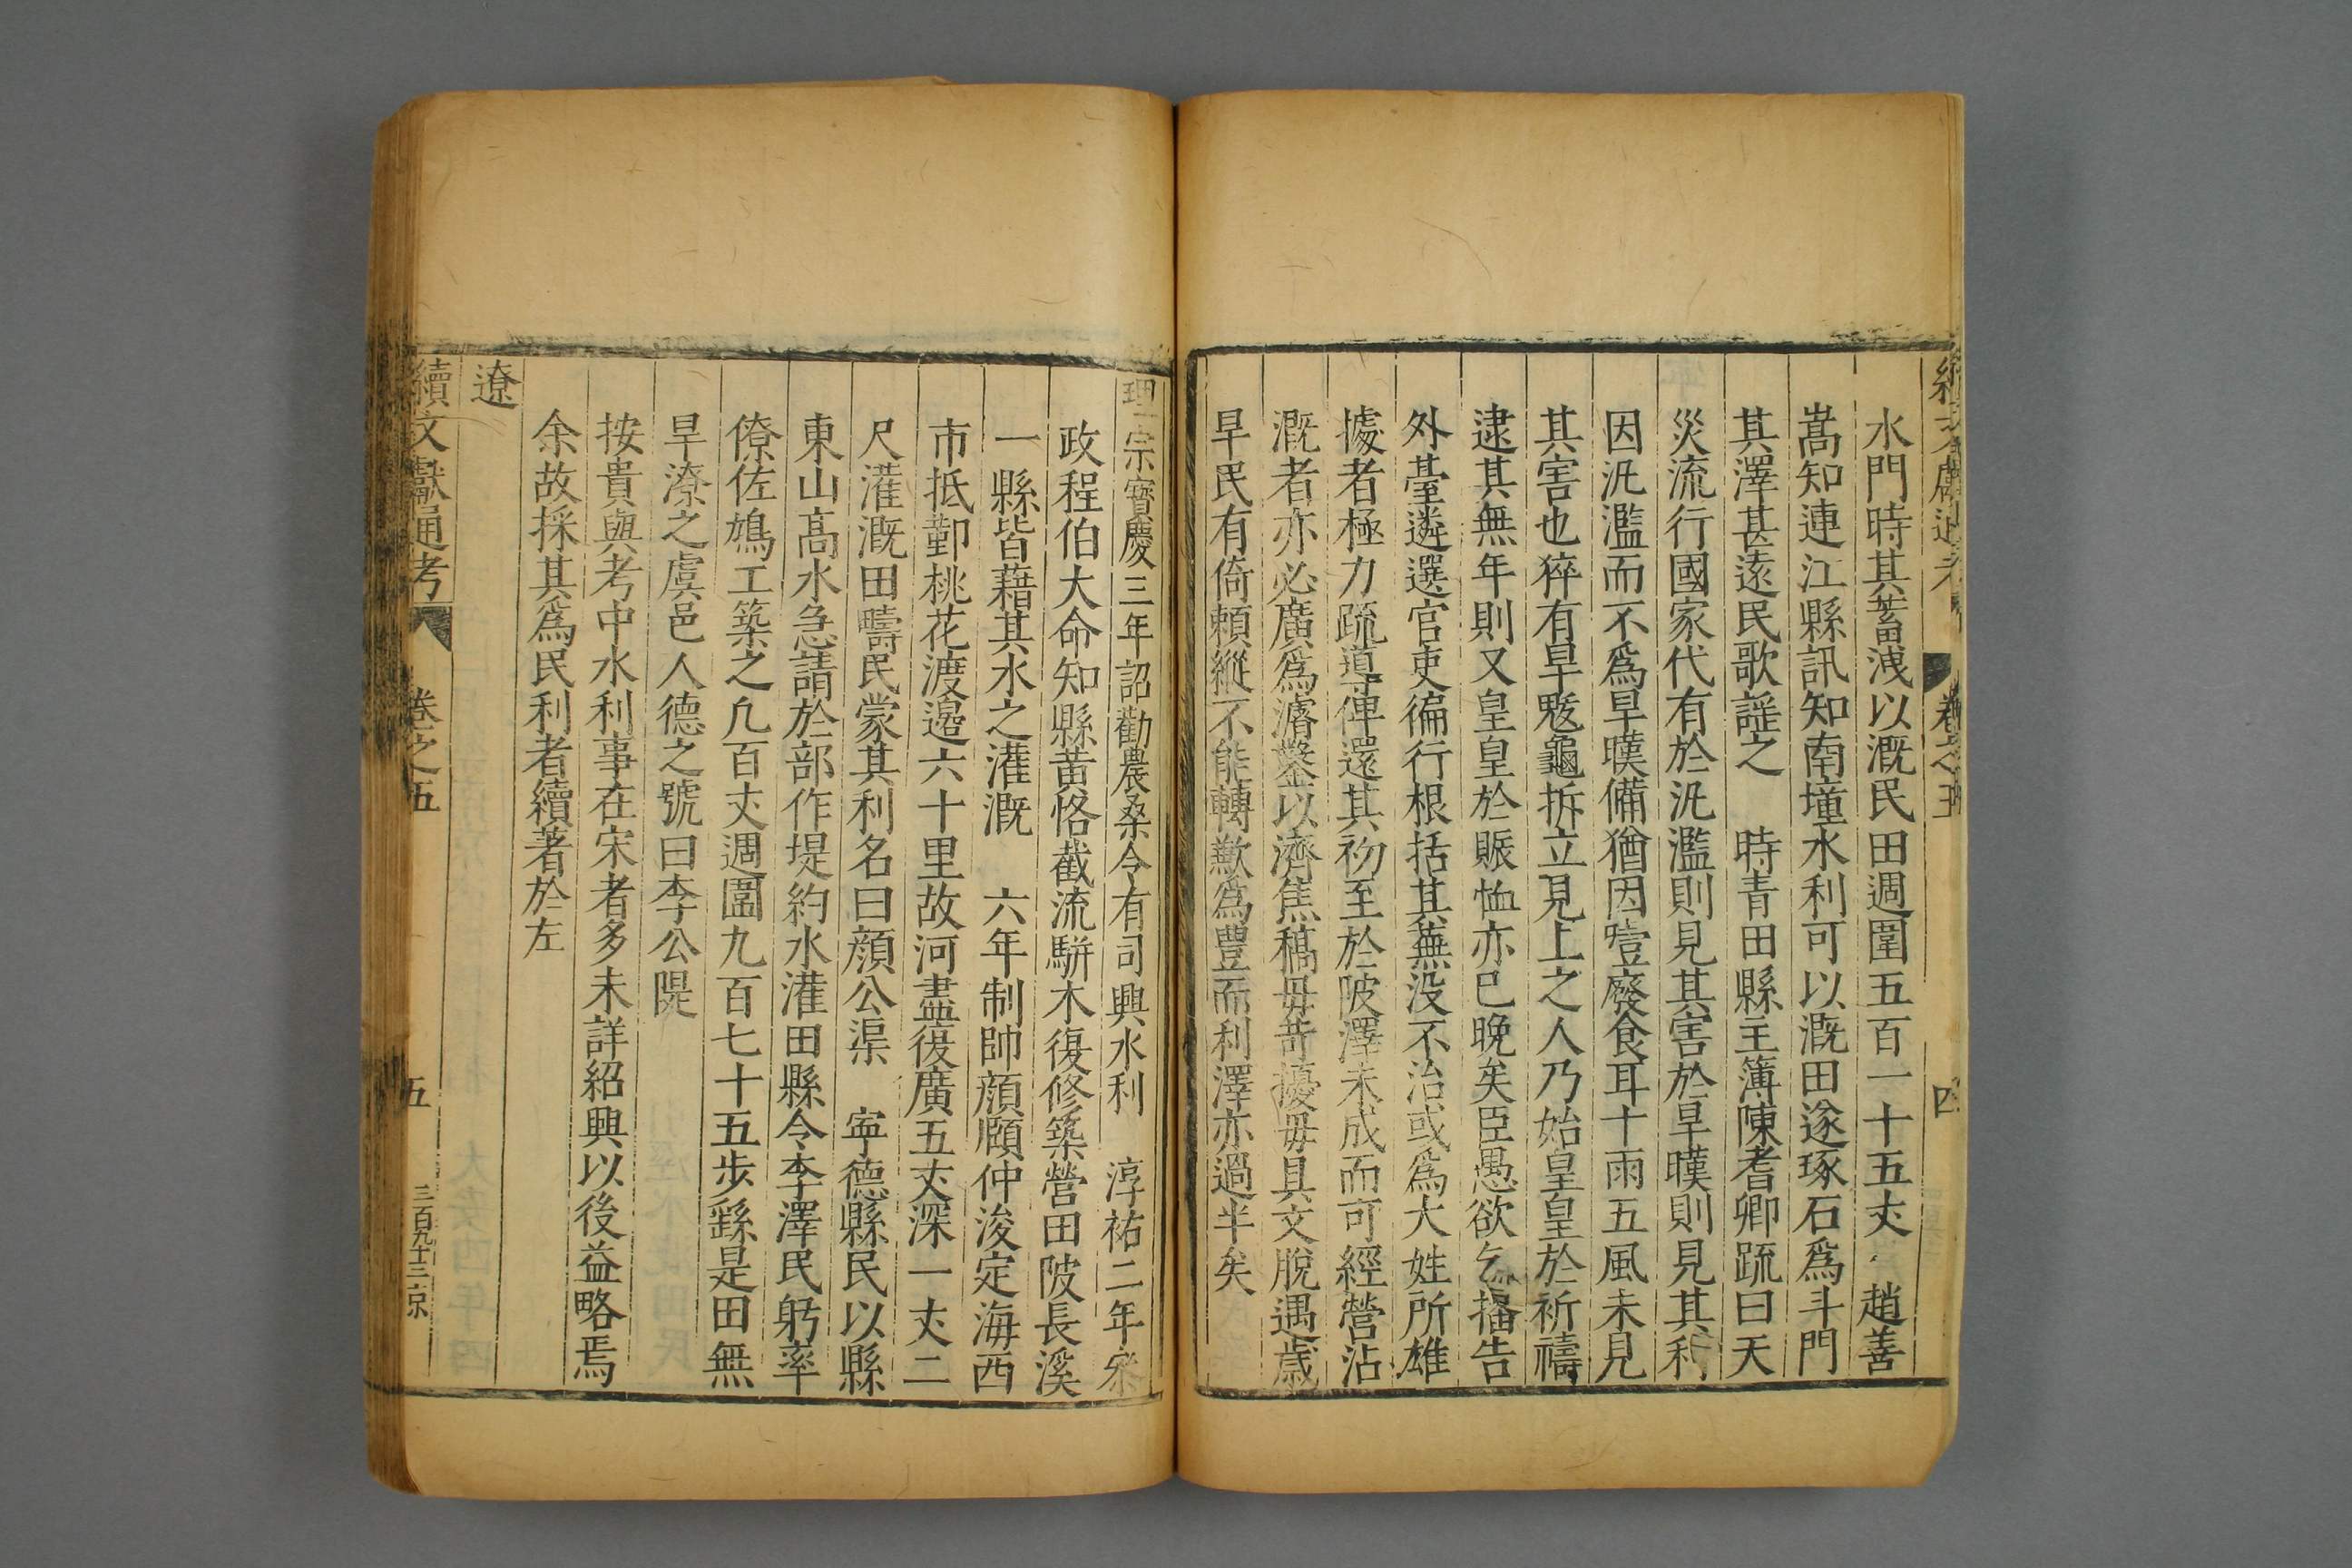 水門時其蓄洩以溉民田週圍五百一十五丈 趙善
嵩知連江縣訊知南壇水利可以溉田遂琢石爲斗門
其澤甚遠民歌謡之 時青田縣主簿陳耆卿疏曰天
災流行國家代有於汎濫則見其害於旱暵則見其利
因汎濫而不爲旱暵備猶因噎廢食耳十雨五風未見
其害也猝有旱魃龜拆立見上之人乃始皇皇於祈禱
逮其無年則又皇皇於賑恤亦已晚矣臣愚欲乞播告
外臺遴選官吏徧行根括其蕪没不治或爲大姓所雄
據者極力疏導俾還其初至於陂澤未成而可經營沾
溉者亦必廣爲濬鑿以濟焦稿毋苛擾毋具文脫遇歲
旱民有倚賴縱不能轉歉爲豐而利澤亦過半矣
理宗寶慶三年詔勸農桑令有司興水利 淳祐二年
政程伯大命知縣黄恪截流駢木復修築營田陂長溪
一縣皆藉其水之灌溉 六年制帥顔頤仲浚定海西
市抵鄞桃花渡邉六十里故河盡復廣五丈深一丈二
尺灌溉田疇民蒙其利名曰顔公渠 寧德縣民以縣
東山高水急請於部作堤約水灌田縣令李澤民躬率
僚佐鳩工築之凢百丈週圍九百七十五步繇是田無
旱潦之虞邑人德之號曰李公隄
按貴與考中水利事在宋者多未詳紹興以後益略焉
余故採其爲民利者續著於左
遼
續文獻通考 卷之五 五 三百九十三 京